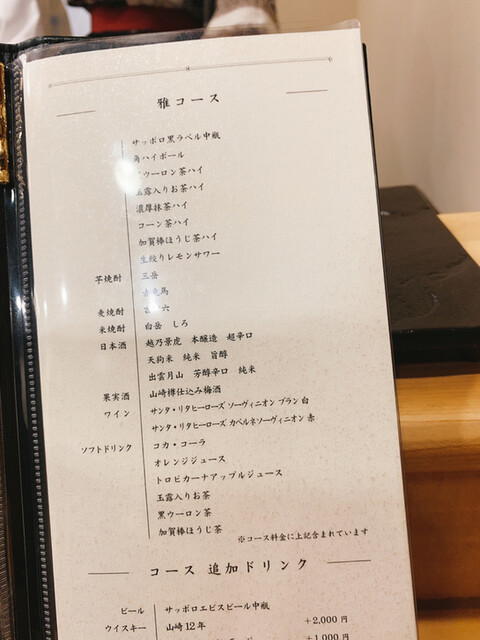 雅コース
サッポロ黒ラベル中瓶
角ハイボール
ウーロン茶ハイ
玉露入りお茶ハイ
濃厚抹茶ハイ
コーン茶ハイ
加賀棒ほうじ茶ハイ
生絞りレモンサワー
芋焼酎 三岳
馬
麦焼酎 六
米焼酎 白岳 しろ
日本酒 越乃景虎 本醸造 超辛口
天狗米 純米 旨醇
出雲月山 芳醇辛口 純米
果実酒 山崎樽仕込み梅酒
ワイン サンタ・リタヒーローズ ソーヴィニオン ブラン 白
サンタ・リタヒーローズ カベルネソーヴィニオン 赤
ソフトドリンク コカ・コーラ
オレンジジュース
トロピカーナアップルジュース
玉露入りお茶
黒ウーロン茶
加賀棒ほうじ茶
※コース料金に上記含まれています
コース 追加ドリンク
ビール サッポロエビスビール中瓶
ウイスキー 山崎12年 +2,000円
+1,000円